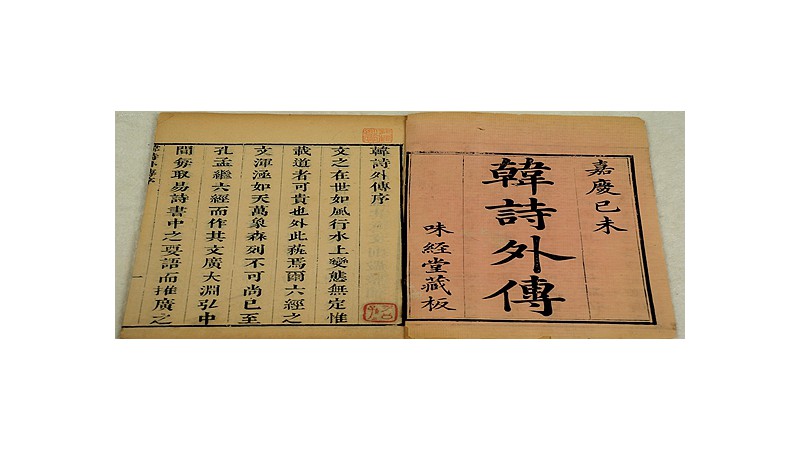 嘉慶己未
韓詩外傳
味經堂藏板
韓詩外傳序
文之在世如風行水上變態無定惟
載道者可貴也外此蔑焉爾六經之
文渾涵如天萬象森列不可尚已至
孔孟繼六經而作其文廣大淵弘中
間每取易詩書中之要語而推廣之